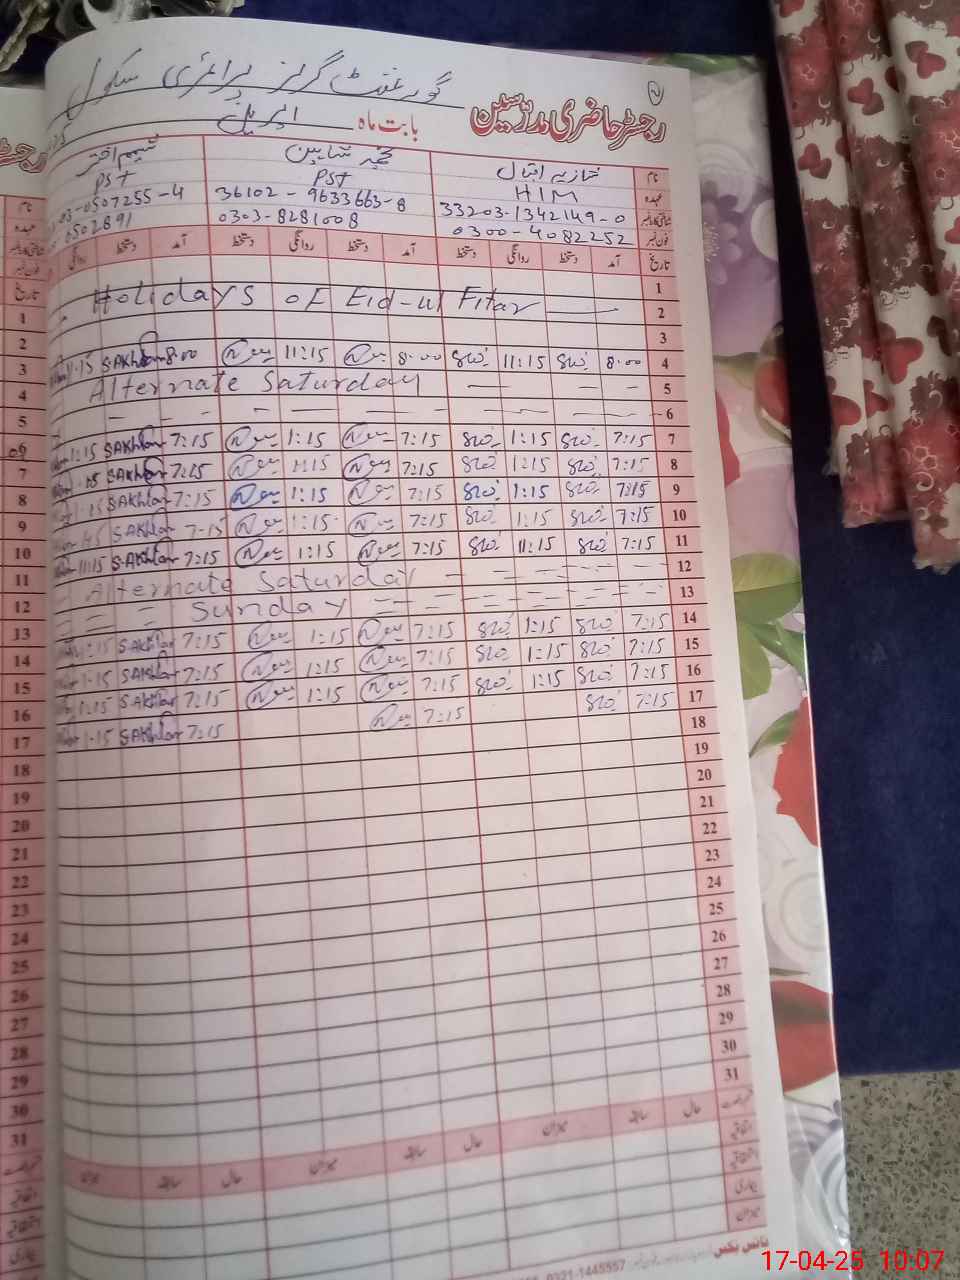 گورنمنٹ گرلز پرائمری سکول
رجسٹر حاضری مدرسین بابت ماہ اپریل
نام شازیہ اقبال نجمہ شاہین نسیم اختر
عہدہ PST PST
33203-1342149-0 36102-9633663-8 03-0507255-4
فون نمبر 0300-4082252 0303-8281008 0502891
تاریخ آمد دستخط روانگی دستخط آمد دستخط روانگی دستخط آمد دستخط روانگی
1
Holidays of Eid-ul Fitar 2
3
11-15 S.Akhtar 8:00 11:15 8:00 11:15 8:00 4
Alternate Saturday 5
6
1:15 SAkhtar 7:15 1:15 7:15 1:15 7:15 7
SAkhtar 7:15 1:15 7:15 1:15 7:15 8
1-15 SAkhtar 7:15 1:15 7:15 1:15 7:15 9
SAkhtar 7-15 1:15 7:15 1:15 7:15 10
11:15 S.Akhtar 7:15 1:15 7:15 11:15 7:15 11
Alternate Saturday 12
Sunday 13
1:15 SAkhtar 7:15 1:15 7:15 1:15 7:15 14
1-15 SAkhtar 7:15 1:15 7:15 1:15 7:15 15
1:15 SAkhtar 7:15 1:15 7:15 1:15 7:15 16
1-15 SAkhtar 7:15 7:15 7:15 17
18
19
20
21
22
23
24
25
26
27
28
29
30
31
حال سابقہ میزان حال سابقہ میزان حال سابقہ میزان
اتفاقیہ
استحقاقیہ
بیماری
میزان
0321-1445557
رجسٹر
نام
عہدہ
فون نمبر
تاریخ
1
2
3
4
5
06
7
8
9
10
11
12
13
14
15
16
17
18
19
20
21
22
23
24
25
26
27
28
29
30
31
17-04-25 10:07